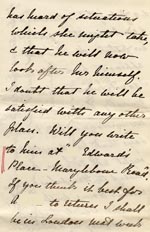 has heard of situations
which she might take,
& that he will now
look after her himself.
I doubt that he will be
satisfied with any other
place. Will you write
to him at "Edwards
Place - Marylebone Road.
If you think it best for
to return I shall
be in London next week